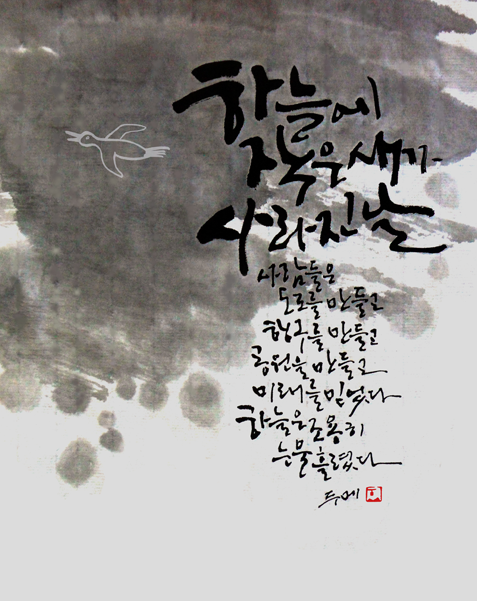 하늘에
작은 새가
사라진 날
사람들은
도로를 만들고
항구를 만들고
공원을 만들고
미래를 믿었다
하늘은 조용히
눈물 흘렸다
두메